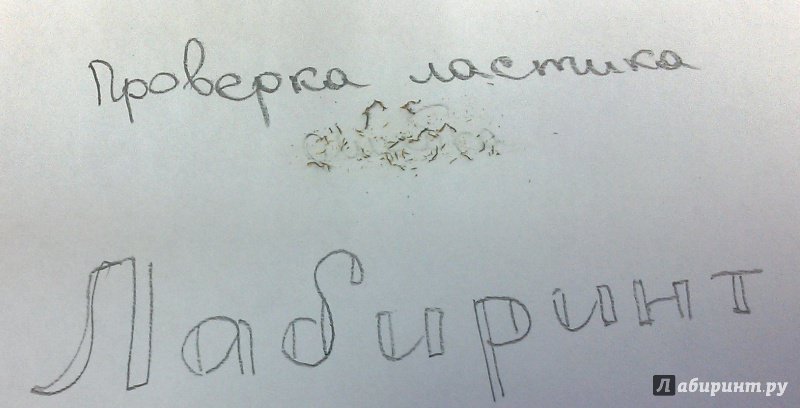 Проверка ластика
Лабиринт
Лабиринт.ру